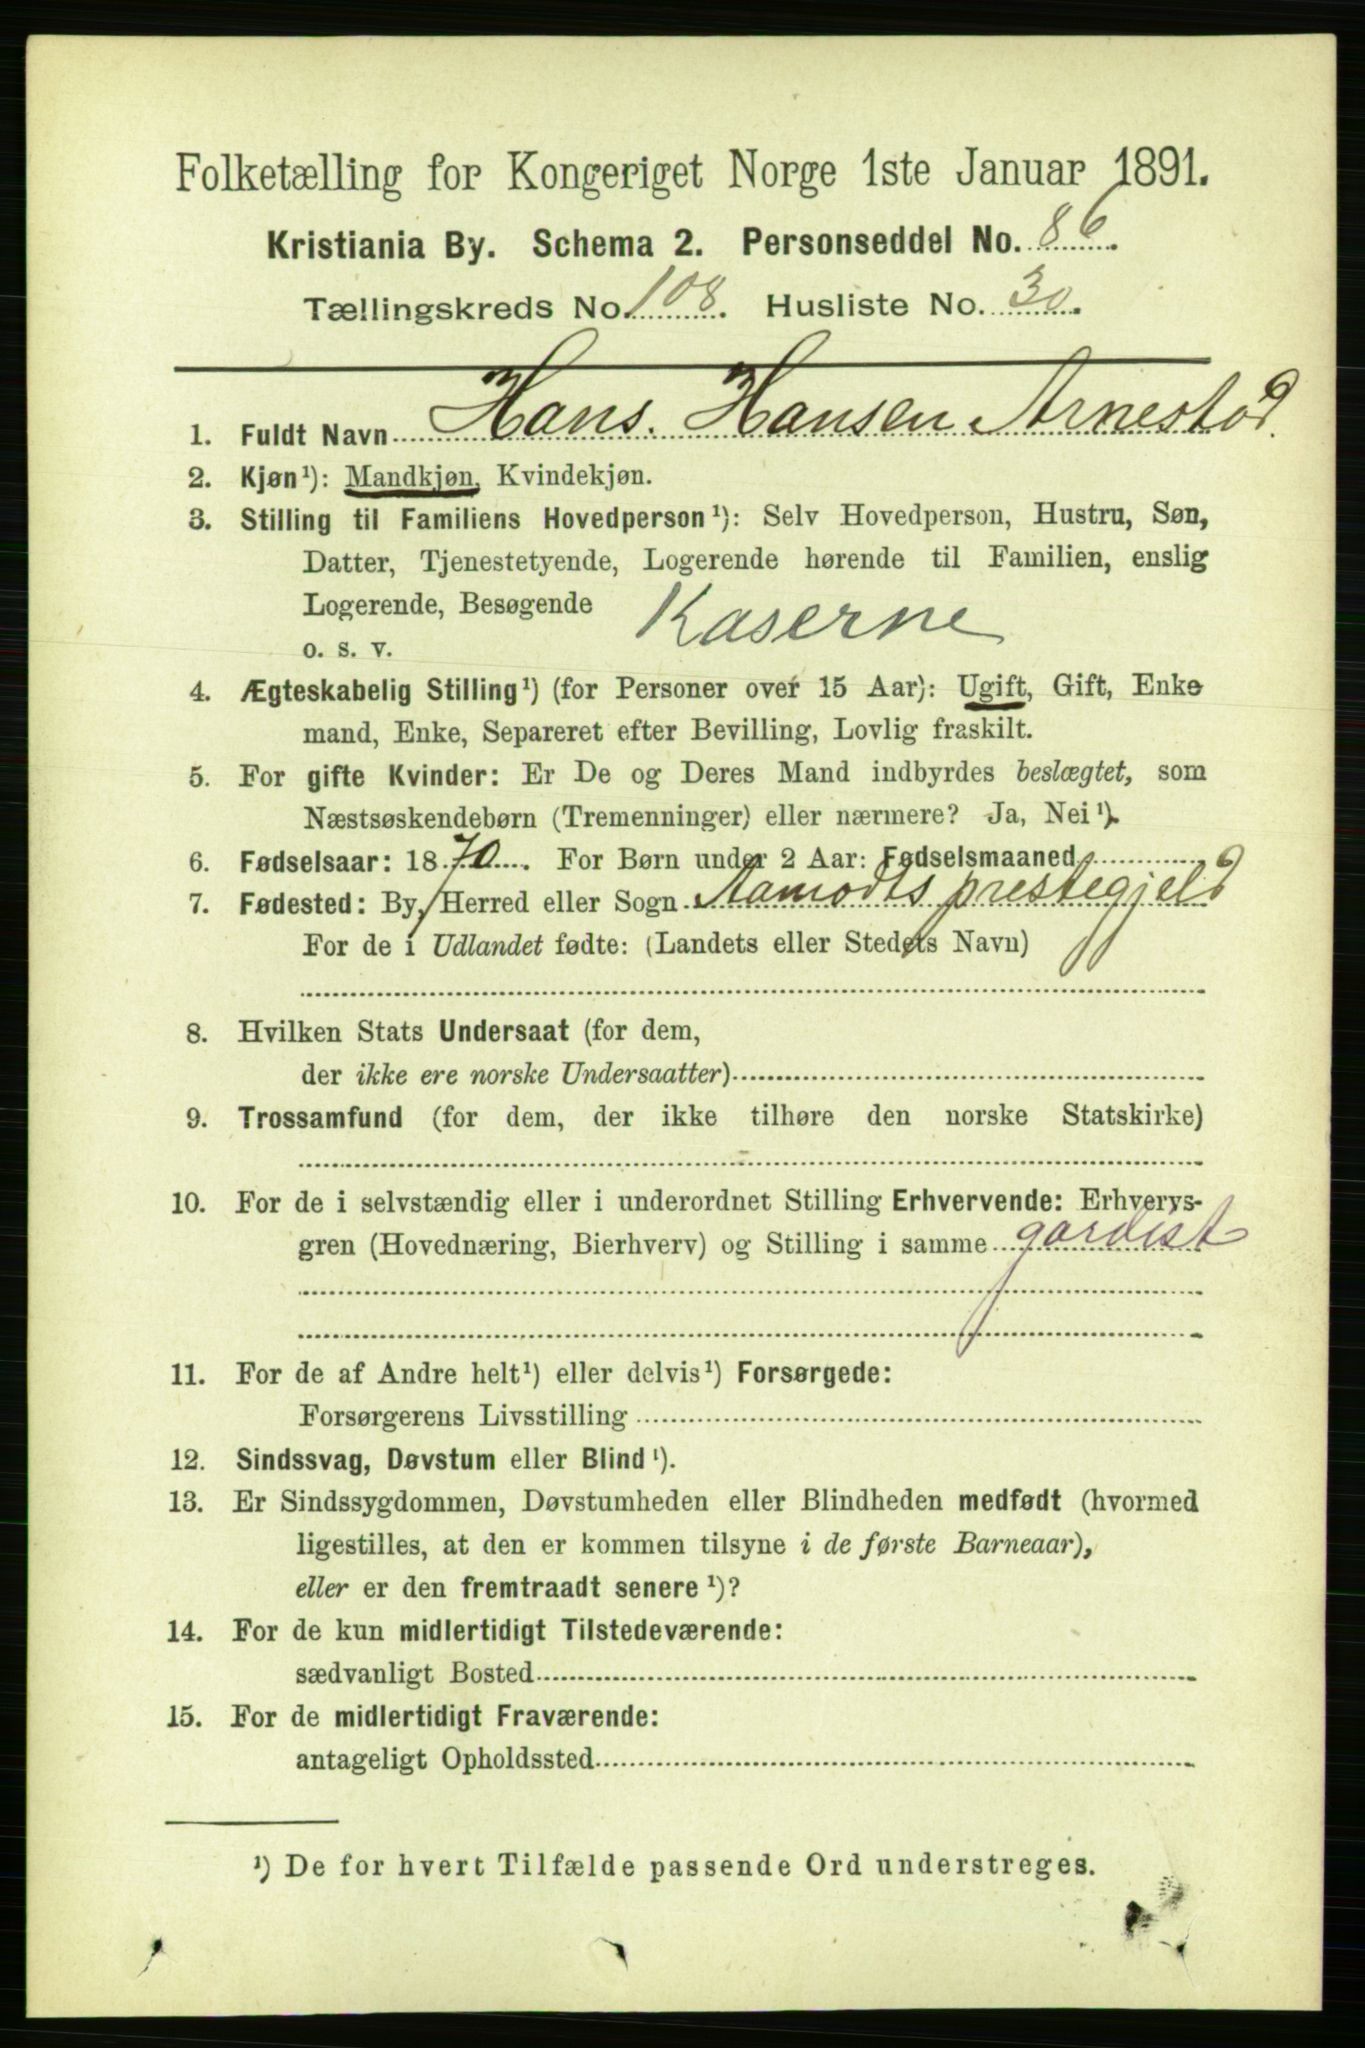 Folketælling for Kongeriget Norge 1ste Januar 1891.
Kristiania By. Schema 2. Personseddel No. 86.
Tællingskreds No. 108. Husliste No. 30.
1. Fuldt Navn Hans. Hansen Arnestød.
2. Kjøn¹): Mandkjøn, Kvindekjøn.
3. Stilling til Familiens Hovedperson¹): Selv Hovedperson, Hustru, Søn,
Datter, Tjenestetyende, Logerende hørende til Familien, enslig
Logerende, Besøgende Kaserne
o. s. v.
4. Ægteskabelig Stilling¹) (for Personer over 15 Aar): Ugift, Gift, Enke
mand, Enke, Separeret efter Bevilling, Lovlig fraskilt.
5. For gifte Kvinder: Er De og Deres Mand indbyrdes beslægtet, som
Næstsøskendebørn (Tremenninger) eller nærmere? Ja, Nei¹).
6. Fødselsaar: 1870. For Børn under 2 Aar: Fødselsmaaned
7. Fødested: By, Herred eller Sogn Aamodts prestegjeld
For de i Udlandet fødte: (Landets eller Stedets Navn)
8. Hvilken Stats Undersaat (for dem,
der ikke ere norske Undersaatter)
9. Trossamfund (for dem, der ikke tilhøre den norske Statskirke)
10. For de i selvstændig eller i underordnet Stilling Erhvervende: Erhvervs-
gren (Hovednæring, Bierhverv) og Stilling i samme gardist
11. For de af Andre helt¹) eller delvis¹) Forsørgede:
Forsørgerens Livsstilling
12. Sindssvag, Døvstum eller Blind¹).
13. Er Sindssygdommen, Døvstumheden eller Blindheden medfødt (hvormed
ligestilles, at den er kommen tilsyne i de første Barneaar),
eller er den fremtraadt senere¹)?
14. For de kun midlertidigt Tilstedeværende:
sædvanligt Bosted
15. For de midlertidigt Fraværende:
antageligt Opholdssted
¹) De for hvert Tilfælde passende Ord understreges.